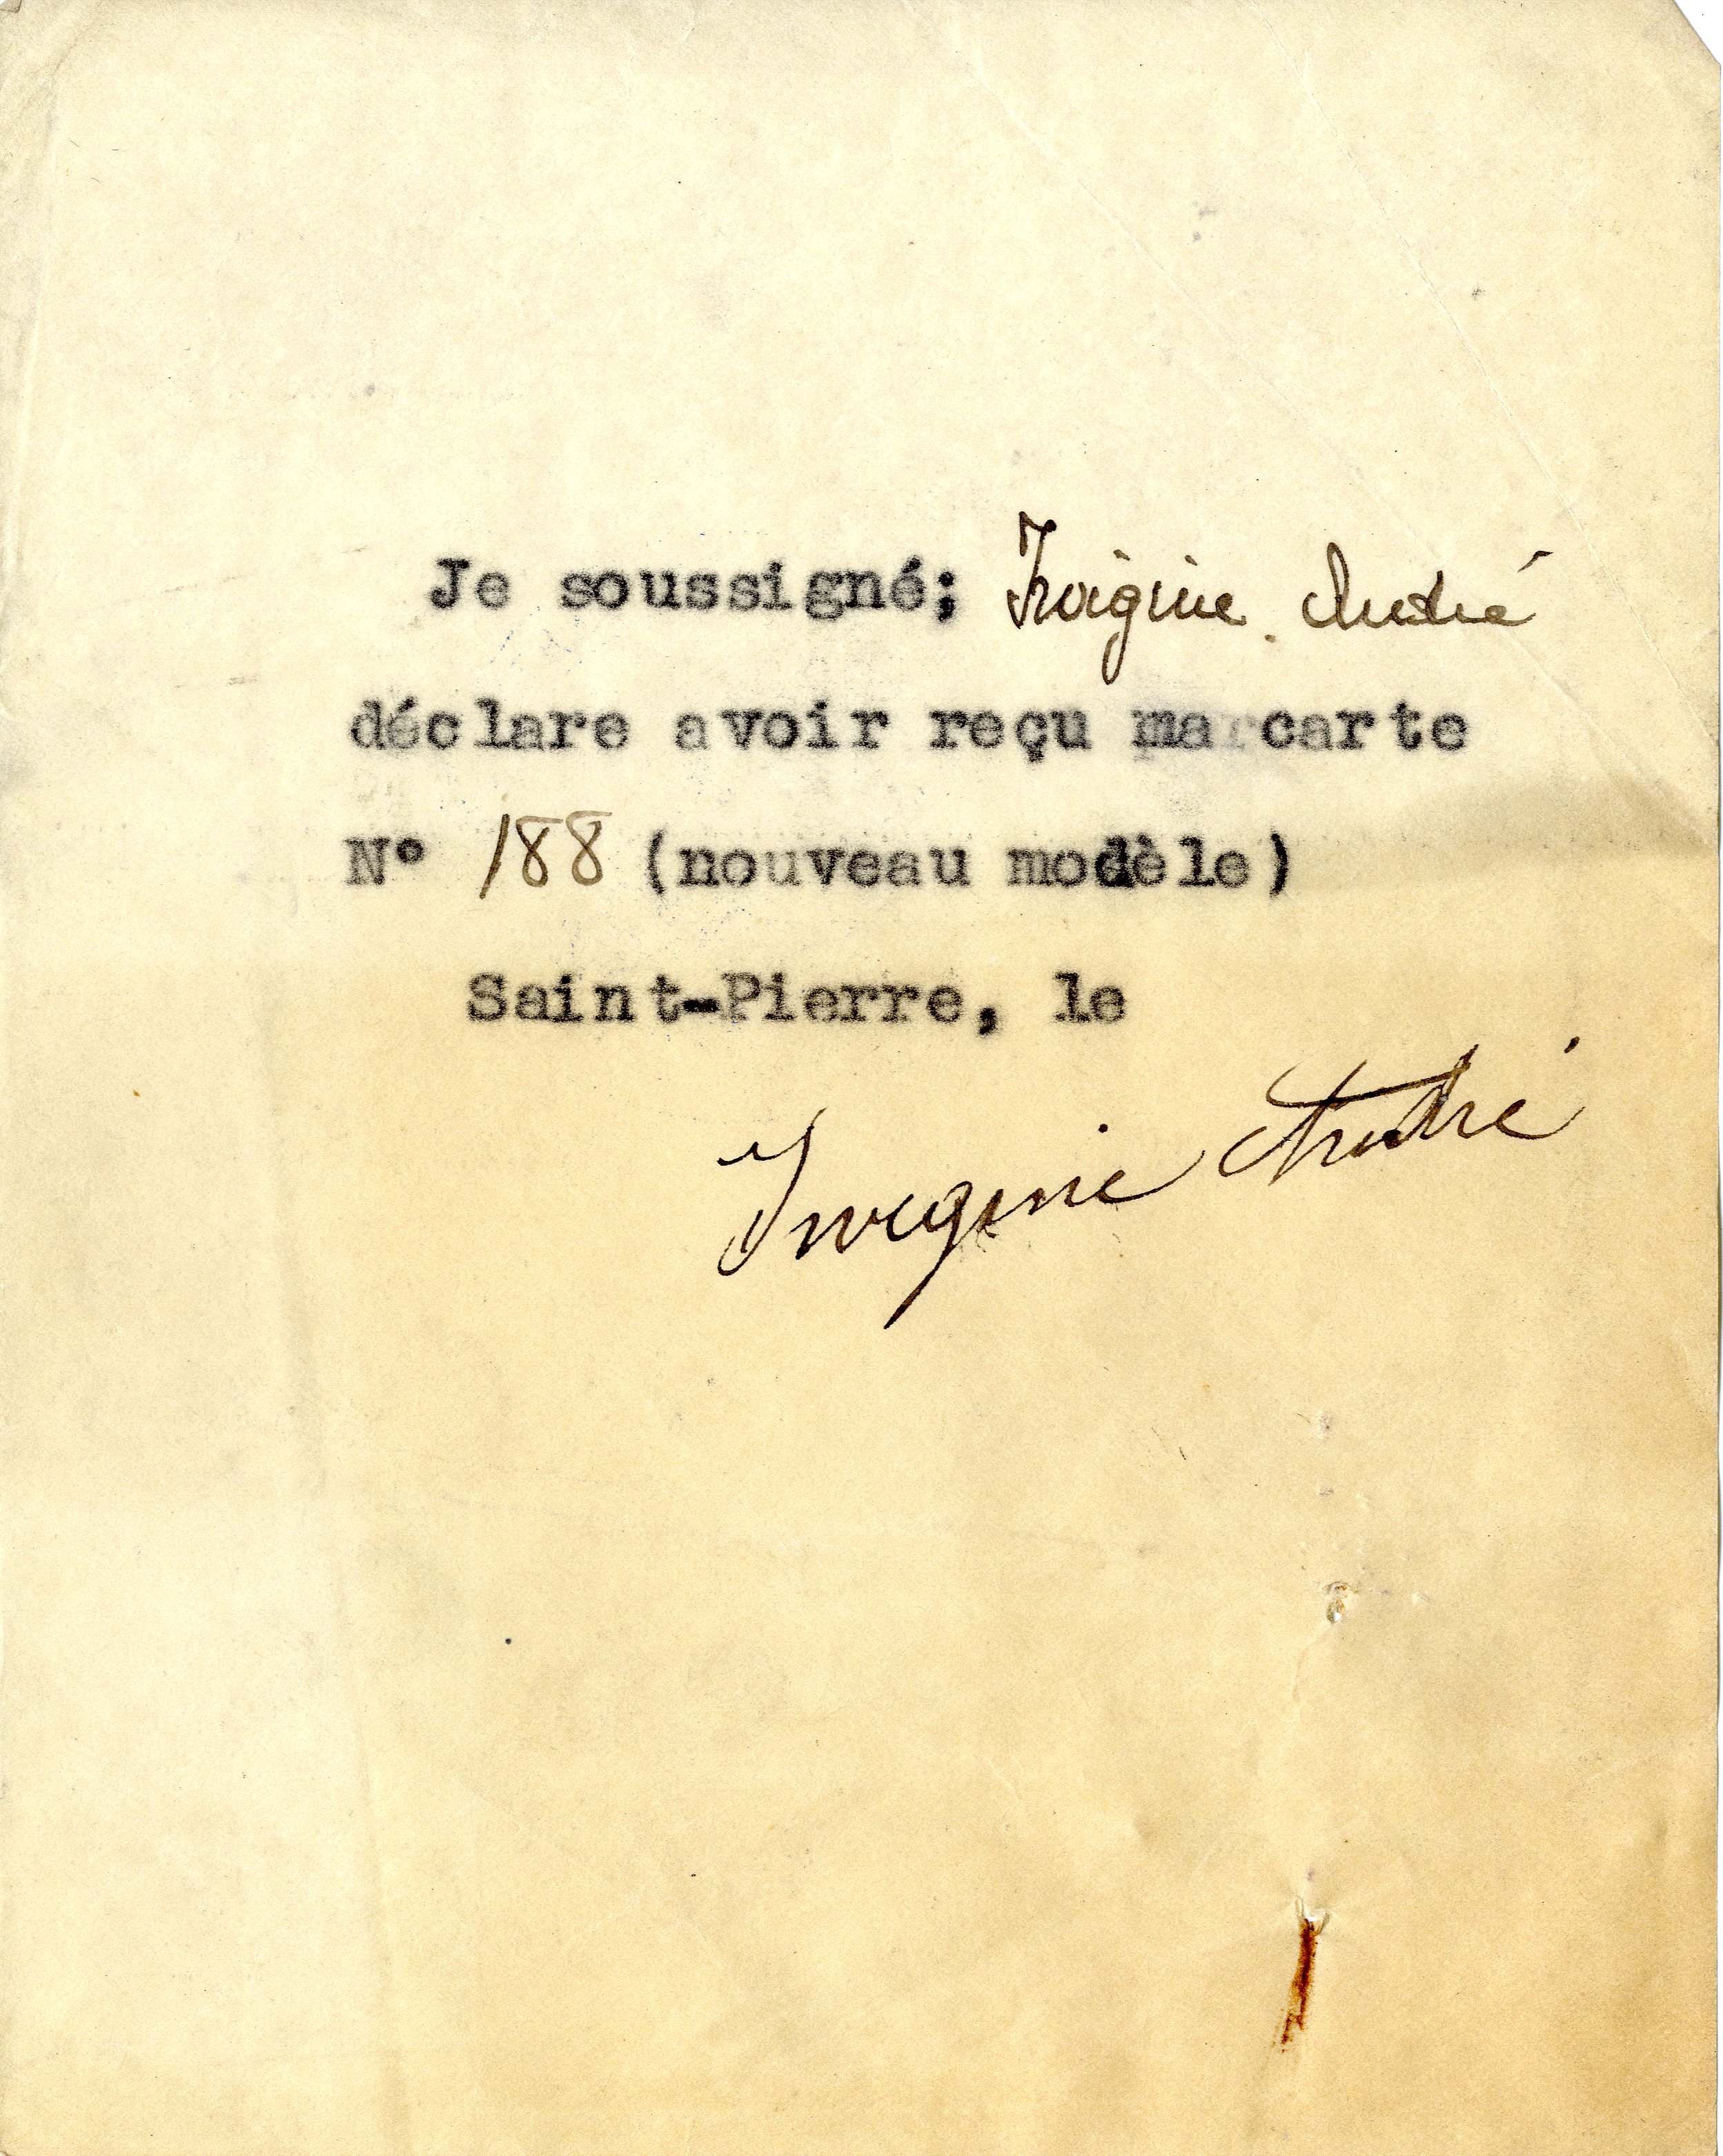 Je soussigné; André
déclare avoir reçu ma carte
N° 188 (nouveau modèle)
Saint-Pierre, le
André